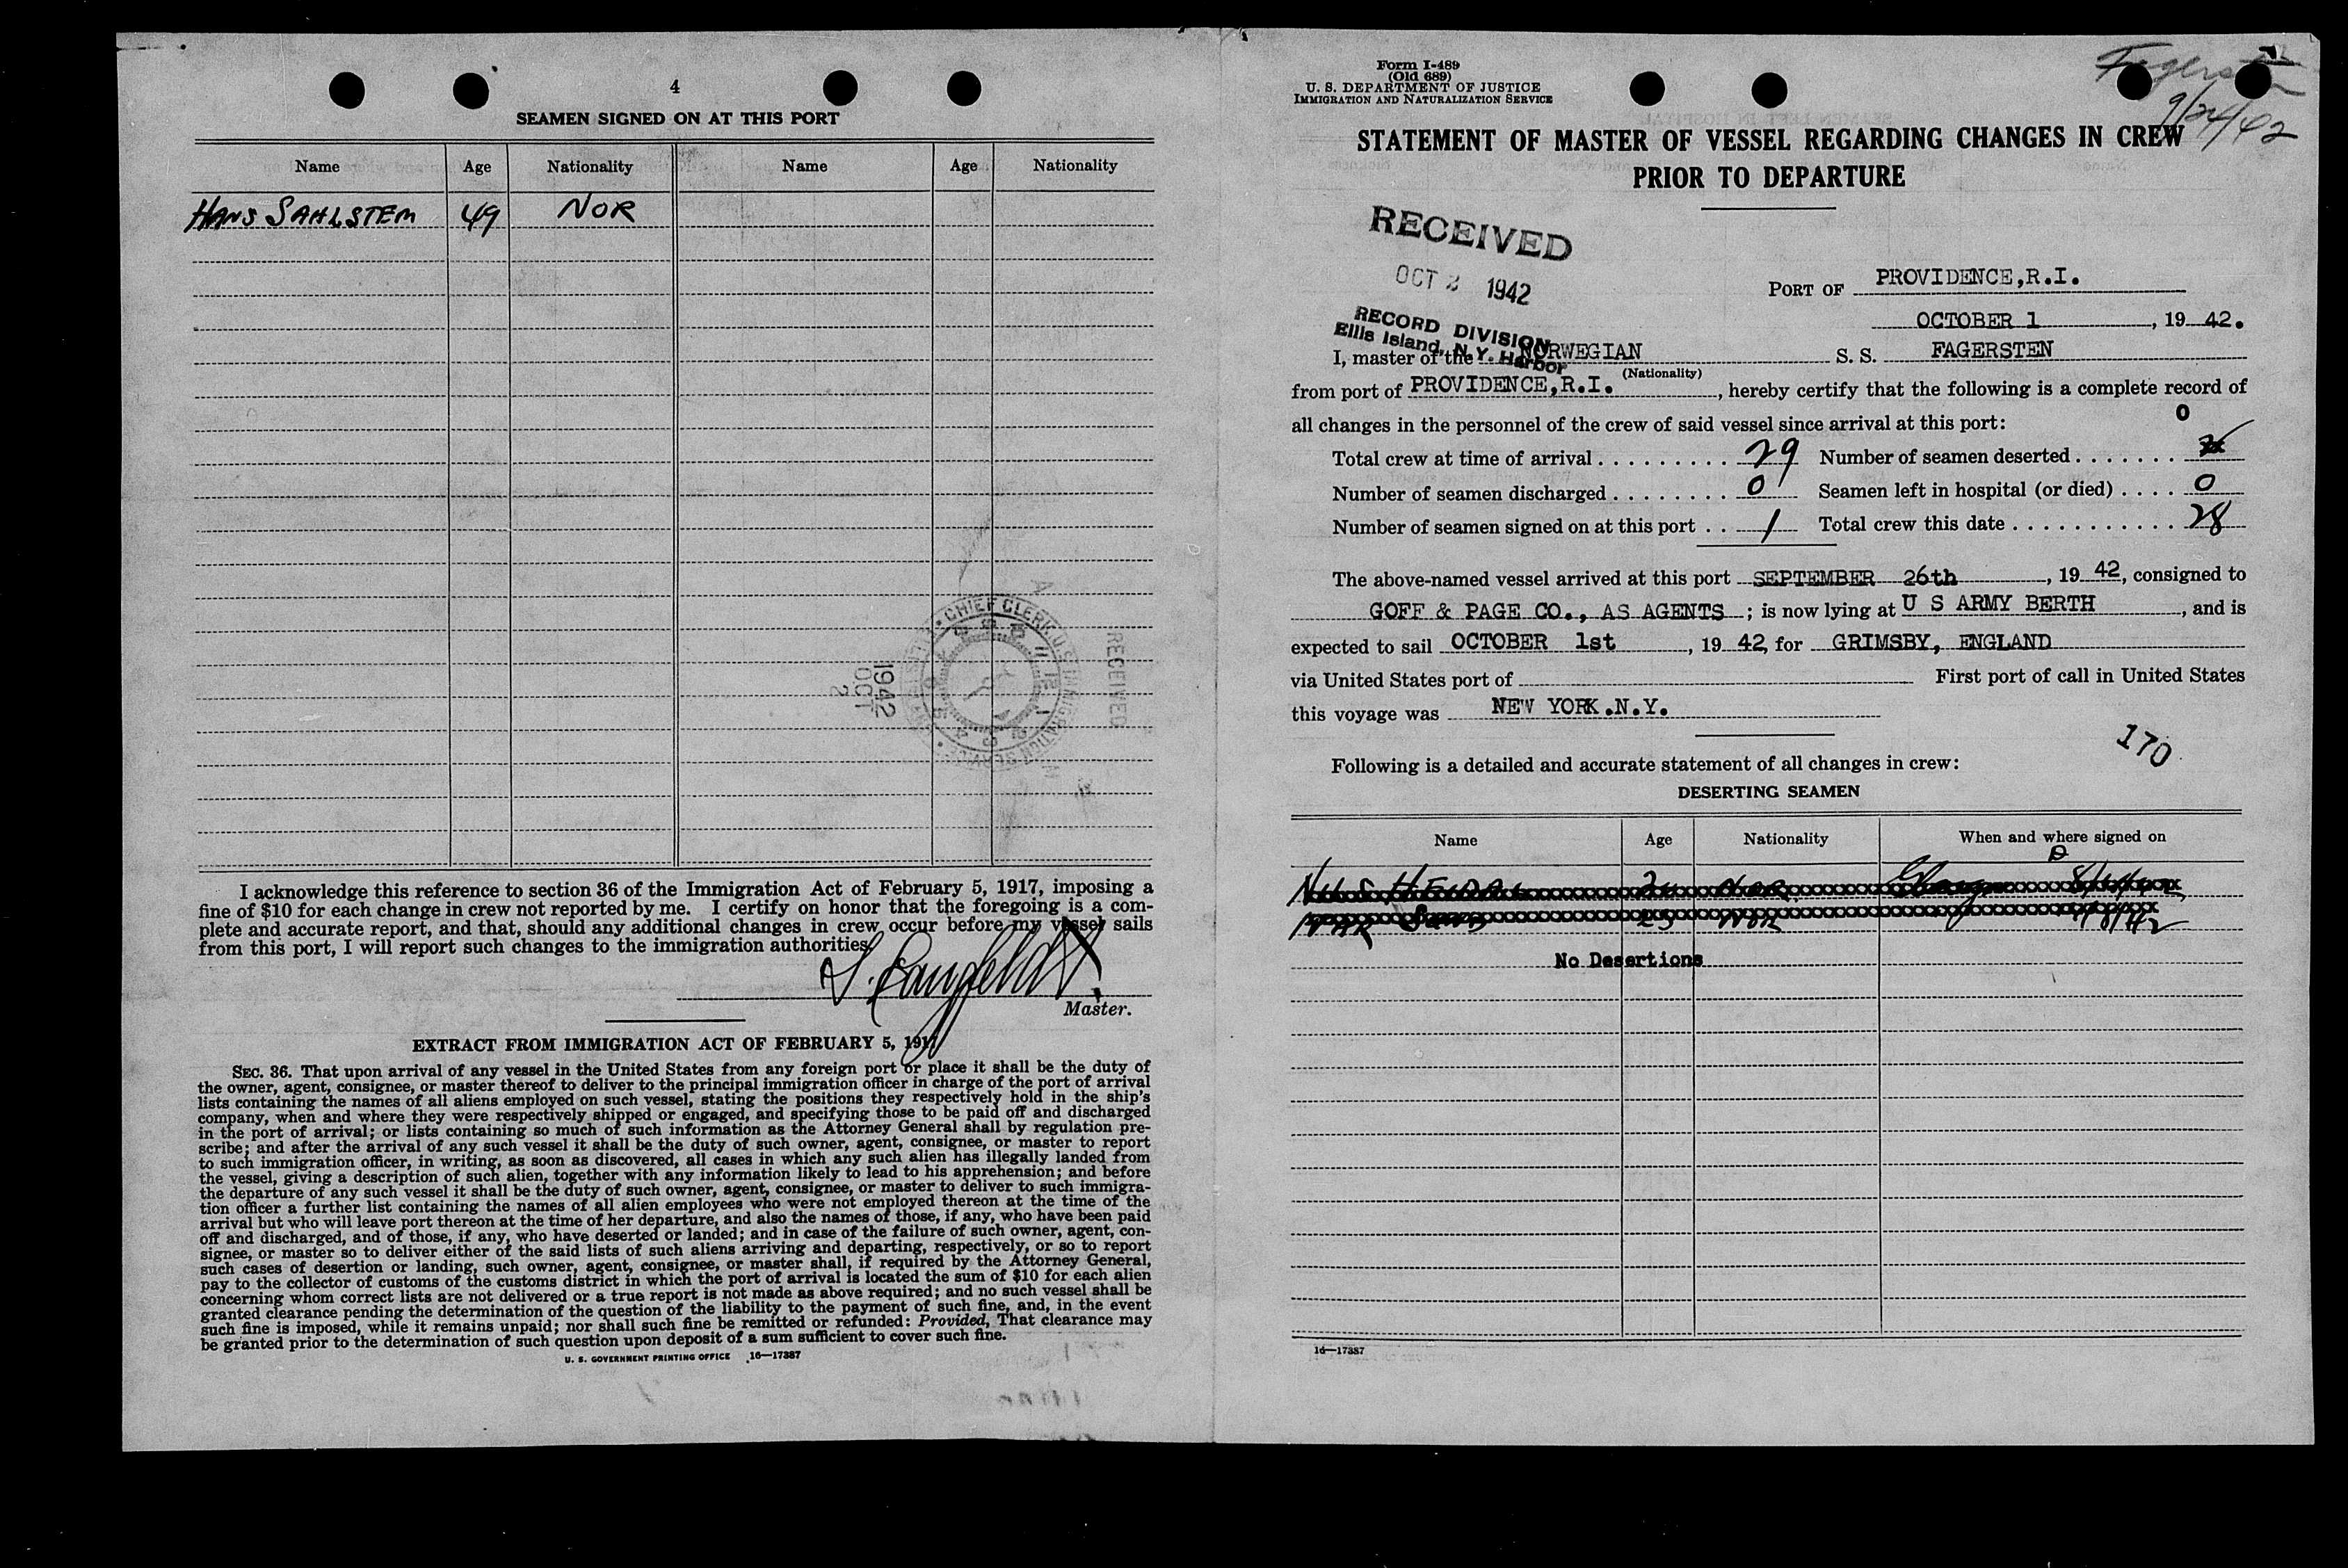 4
SEAMEN SIGNED ON AT THIS PORT
Name Age Nationality Name Age Nationality
HANS SAHLSTEM 49 NOR
RECEIVED
CHIEF CLERK U.S. IMMIGRATION SERVICE
1942
OCT
2
I acknowledge this reference to section 36 of the Immigration Act of February 5, 1917, imposing a
fine of $10 for each change in crew not reported by me. I certify on honor that the foregoing is a com-
plete and accurate report, and that, should any additional changes in crew occur before my vessel sails
from this port, I will report such changes to the immigration authorities.
Master.
EXTRACT FROM IMMIGRATION ACT OF FEBRUARY 5, 1917
SEC. 36. That upon arrival of any vessel in the United States from any foreign port or place it shall be the duty of
the owner, agent, consignee, or master thereof to deliver to the principal immigration officer in charge of the port of arrival
lists containing the names of all aliens employed on such vessel, stating the positions they respectively hold in the ship's
company, when and where they were respectively shipped or engaged, and specifying those to be paid off and discharged
in the port of arrival; or lists containing so much of such information as the Attorney General shall by regulation pre-
scribe; and after the arrival of any such vessel it shall be the duty of such owner, agent, consignee, or master to report
to such immigration officer, in writing, as soon as discovered, all cases in which any such alien has illegally landed from
the vessel, giving a description of such alien, together with any information likely to lead to his apprehension; and before
the departure of any such vessel it shall be the duty of such owner, agent, consignee, or master to deliver to such immigra-
tion officer a further list containing the names of all alien employees who were not employed thereon at the time of the
arrival but who will leave port thereon at the time of her departure, and also the names of those, if any, who have been paid
off and discharged, and of those, if any, who have deserted or landed; and in case of the failure of such owner, agent, con-
signee, or master so to deliver either of the said lists of such aliens arriving and departing, respectively, or so to report
such cases of desertion or landing, such owner, agent, consignee, or master shall, if required by the Attorney General,
pay to the collector of customs of the customs district in which the port of arrival is located the sum of $10 for each alien
concerning whom correct lists are not delivered or a true report is not made as above required; and no such vessel shall be
granted clearance pending the determination of the question of the liability to the payment of such fine, and, in the event
such fine is imposed, while it remains unpaid; nor shall such fine be remitted or refunded: Provided, That clearance may
be granted prior to the determination of such question upon deposit of a sum sufficient to cover such fine.
U. S. GOVERNMENT PRINTING OFFICE 16—17387
Form I-489
(Old 689)
U. S. DEPARTMENT OF JUSTICE
IMMIGRATION AND NATURALIZATION SERVICE
9/24/42
STATEMENT OF MASTER OF VESSEL REGARDING CHANGES IN CREW
PRIOR TO DEPARTURE
RECEIVED
OCT 2 1942
RECORD DIVISION
Ellis Island, N.Y. Harbor
PORT OF PROVIDENCE,R.I.
OCTOBER 1, 19 42.
I, master of the NORWEGIAN S. S. FAGERSTEN
(Nationality)
from port of PROVIDENCE,R.I., hereby certify that the following is a complete record of
all changes in the personnel of the crew of said vessel since arrival at this port: 0
Total crew at time of arrival 29 Number of seamen deserted
Number of seamen discharged 0 Seamen left in hospital (or died) 0
Number of seamen signed on at this port 1 Total crew this date 28
The above-named vessel arrived at this port SEPTEMBER 26th, 19 42, consigned to
GOFF & PAGE CO., AS AGENTS ; is now lying at U S ARMY BERTH, and is
expected to sail OCTOBER 1st, 19 42, for GRIMSBY, ENGLAND
via United States port of First port of call in United States
this voyage was NEW YORK.N.Y.
170
Following is a detailed and accurate statement of all changes in crew:
DESERTING SEAMEN
Name Age Nationality When and where signed on
No Desertions
16—17387